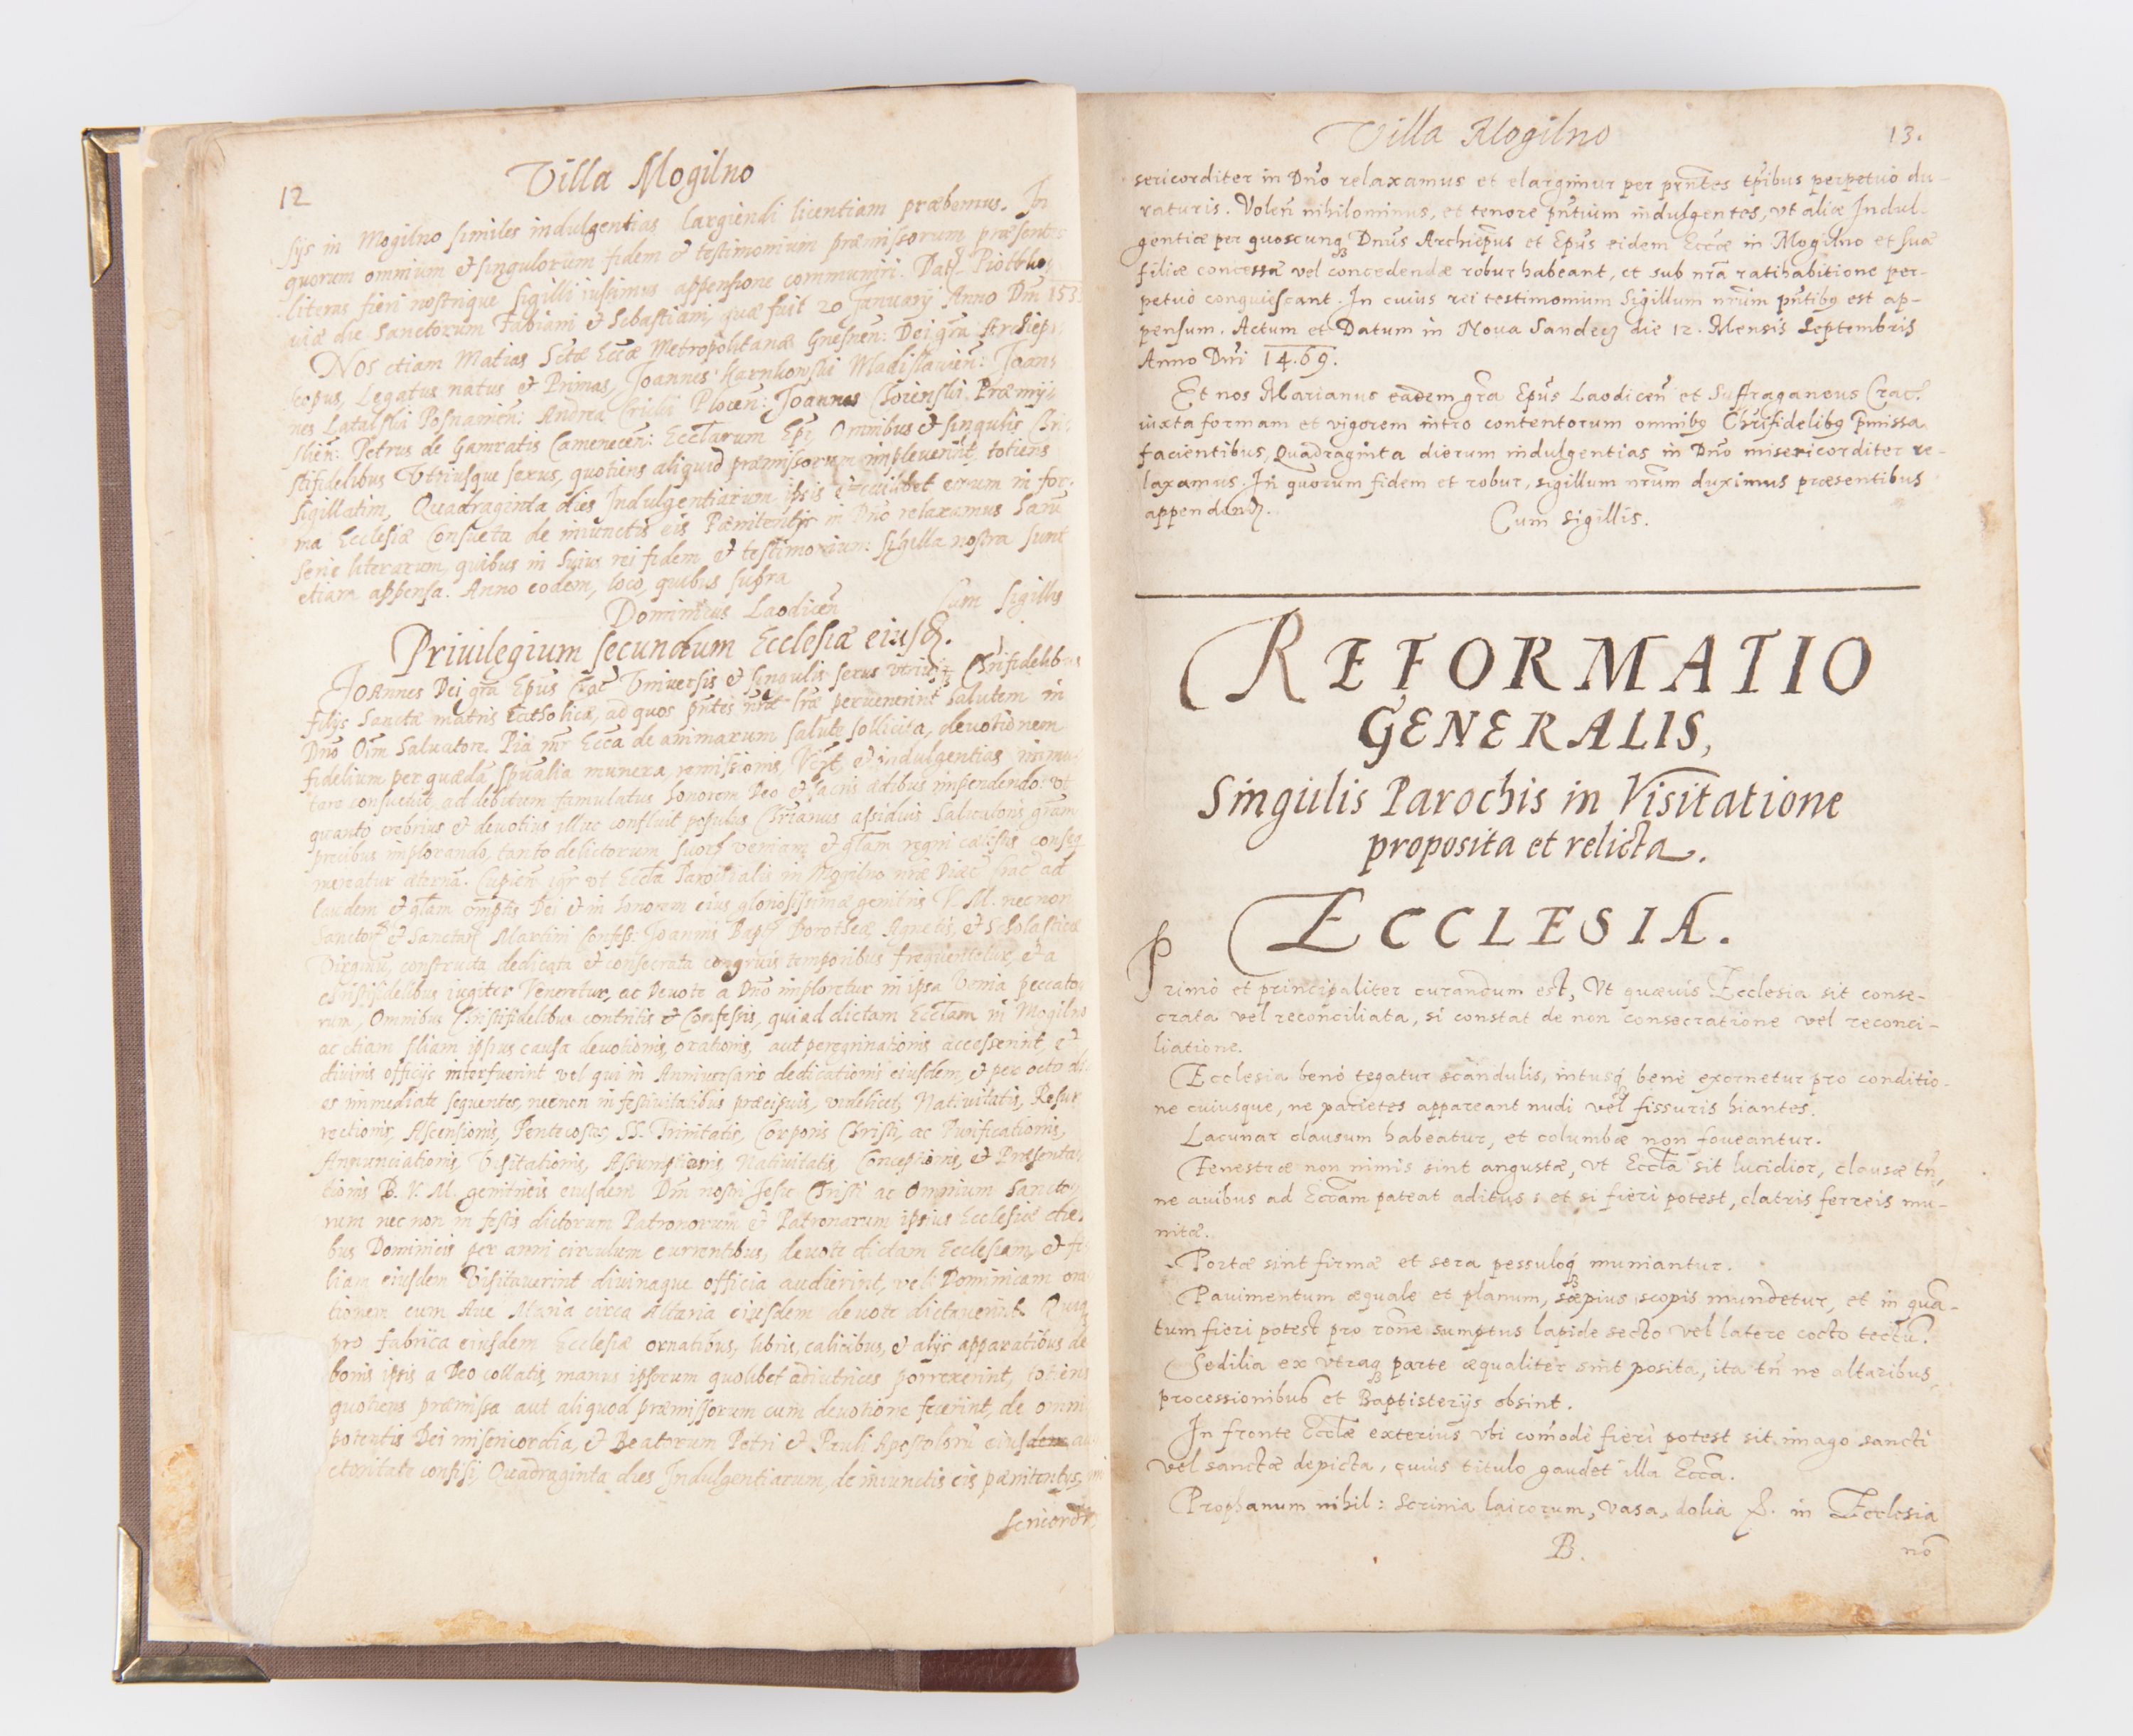 12
Villa Mogilno
sijs in Mogilno similes indulgentias largiendi licentiam præbemus. In
quorum omnium et singulorum fidem et testimonium præmissorum præsentes
literas fieri nostrique sigilli iussimus appensione communiri. Dat
viæ die Sanctorum Fabiani et Sebastiani, quæ fuit 20 Januarij Anno Dni 153
Nos etiam Matias Sctæ Eccæ Metropolitanæ Gnesnen: Dei gra Archiepi
scopus, Legatus natus et Primas, Joannes Karnkowski Wladislavien: Joan
nes Latalski Posnanien: Andreas Plocen: Joannes Choienski Præmij
slien: Petrus de Gamratis Camenecen: Ecclarum Epi, Omnibus et singulis Chri
stifidelibus Utriusque sexus, quotiens aliquid præmissorum impleverint, totiens
sigillatim, Quadraginta dies Indulgentiarum ipsis et cuilibet eorum in for-
ma Ecclesiæ Consueta de iniunctis eis Pænitentijs in Dno relaxamus harũ
serie literarum, quibus in huius rei fidem et testimonium sigilla nostra sunt
etiam appensa. Anno eodem, loco, quibus supra
Dominicus Laodicen̄ Cum sigillis
Privilegium secundum Ecclesiæ eiusd.
Joannes Dei gra Epus Crac Universis et singulis sexus utriusq Chrifidelibus
filijs Sanctæ matris Catholicæ, ad quos pntes nræ lræ pervenerint Salutem in
Dno Oim Salvatore. Pia mr Ecca de animarum salute sollicita, devotionem
fidelium per quædã spualia munera, remissionis, et indulgentias invi
tare consuevit, ad debitum famulatus honorem Deo et sacris ædibus impendendo: ut
quanto crebrius et devotius illuc confluit populus Chrianus assiduis Salvatoris gram
precibus implorando, tanto delictorum suorũ veniam et glam regni cælestis conseq
mereatur æternã. Cupien igr ut Eccla Parochialis in Mogilno nræ Diæc Crac ad
laudem et glam omptis Dei et in honorem eius gloriosissimæ genitricis V. M. nec non
Sanctorũ et Sanctarũ Martini Confess: Joannis Bapt Dorotheæ Agnetis, et Scholasticæ
Virginũ, constructa dedicata et consecrata congruis temporibus frequentetur, et a
christifidelibus iugiter Veneretur, ac Devote a Dno imploretur in ipsa Venia peccato
rum, Omnibus Christifidelibus contritis et Confessis, qui ad dictam Ecclam in Mogilno
ac etiam filiam ipsius causa devotionis, orationis, aut peregrinationis accesserint, et
divinis officijs interfuerint vel qui in Anniversario dedicationis eiusdem, et per octo di
es immediate sequentes, necnon in festivitatibus præcipuis, videlicet, Nativitatis, Resur
rectionis, Ascensionis, Pentecostes, SS. Trinitatis, Corporis Christi, ac Purificationis,
Annunciationis, Visitationis, Assumptionis, Nativitatis, Conceptionis, et Præsenta
tionis B. V. M. genitricis eiusdem Dni nostri Jesu Christi ac Omnium Sancto
rum nec non in festis dictorum Patronorum et Patronarum ipsius Ecclesiæ die
bus Dominicis per anni circulum currentibus, devote dictam Ecclesiam, et fi
liam eiusdem Visitaverint divinaque officia audierint, vel Dominicam ora
tionem cum Ave Maria circa Altaria eiusdem devote dictaverint. Quiq
pro fabrica eiusdem Ecclesiæ ornatibus, libris, calicibus, et alijs apparatibus de
bonis ipsis a Deo collatis, manus ipsorum quolibet adiutrices porrexerint, totiens
quotiens præmissa aut aliquod præmissorum cum devotione fecerint, de omni
potentis Dei misericordia, et Beatorum Petri et Pauli Apostolorũ eiusdem au
ctoritate confisi, Quadraginta dies Indulgentiarum, de iniunctis eis pænitentijs, mi
sericordi
Villa Mogilno
13.
sericorditer in Dno relaxamus et elargimur per prntes tpibus perpetuò du-
raturis. Volen nihilominus, et tenore pntium indulgentes, ut aliæ Indul-
gentiæ per quoscunq Dnus Archiepus et Epus eidem Eccæ in Mogilno et suæ
filiæ concessæ vel concedendæ robur habeant, et sub nra ratihabitione per-
petuò conquiescant. In cuius rei testimonium Sigillum nrum pntibq est ap-
pensum. Actum et Datum in Nova Sandecz die 12. Mensis Septembris
Anno Dni 1469.
Et nos Marianus eadem gra Epus Laodicen et Suffraganeus Crac.
iuxta formam et vigorem intro contentorum omnibq Chrifidelibq pmissa
facientibus, Quadraginta dierum indulgentias in Dno misericorditer re-
laxamus. In quorum fidem et robur, sigillum nrum duximus præsentibus
appendend.
Cum sigillis.
REFORMATIO
GENERALIS,
Singulis Parochis in Visitatione
proposita et relicta.
ECCLESIA.
Primò et principaliter curandum est, Ut quævis Ecclesia sit conse-
crata vel reconciliata, si constat de non consecratione vel reconci-
liatione.
Ecclesia benè tegatur scandulis, intusq benè exornetur pro conditio-
ne cuiusque, ne parietes appareant nudi vel fissuris hiantes.
Lacunar clausum habeatur, et columbæ non foveantur.
Fenestræ non nimis sint angustæ, ut Eccla sit lucidior, clausæ tn,
ne avibus ad Eccam pateat aditus et si fieri potest, clatris ferreis mu-
nitæ.
Portæ sint firmæ et sera pessuloq muniantur.
Pavimentum æquale et planum, sæpius scopis mundetur, et in quã-
tum fieri potest pro rone sumptus lapide secto vel latere cocto tectũ.
Sedilia ex utraq parte æqualiter sint posita, ita tn ne altaribus,
processionibus et Baptisterijs obsint.
In fronte Ecclæ exterius ubi comodè fieri potest sit imago sancti
vel sanctæ depicta, cuius titulo gaudet illa Ecca.
Prophanum nihil: scrinia laicorum, vasa, dolia &. in Ecclesia
B.
nõ